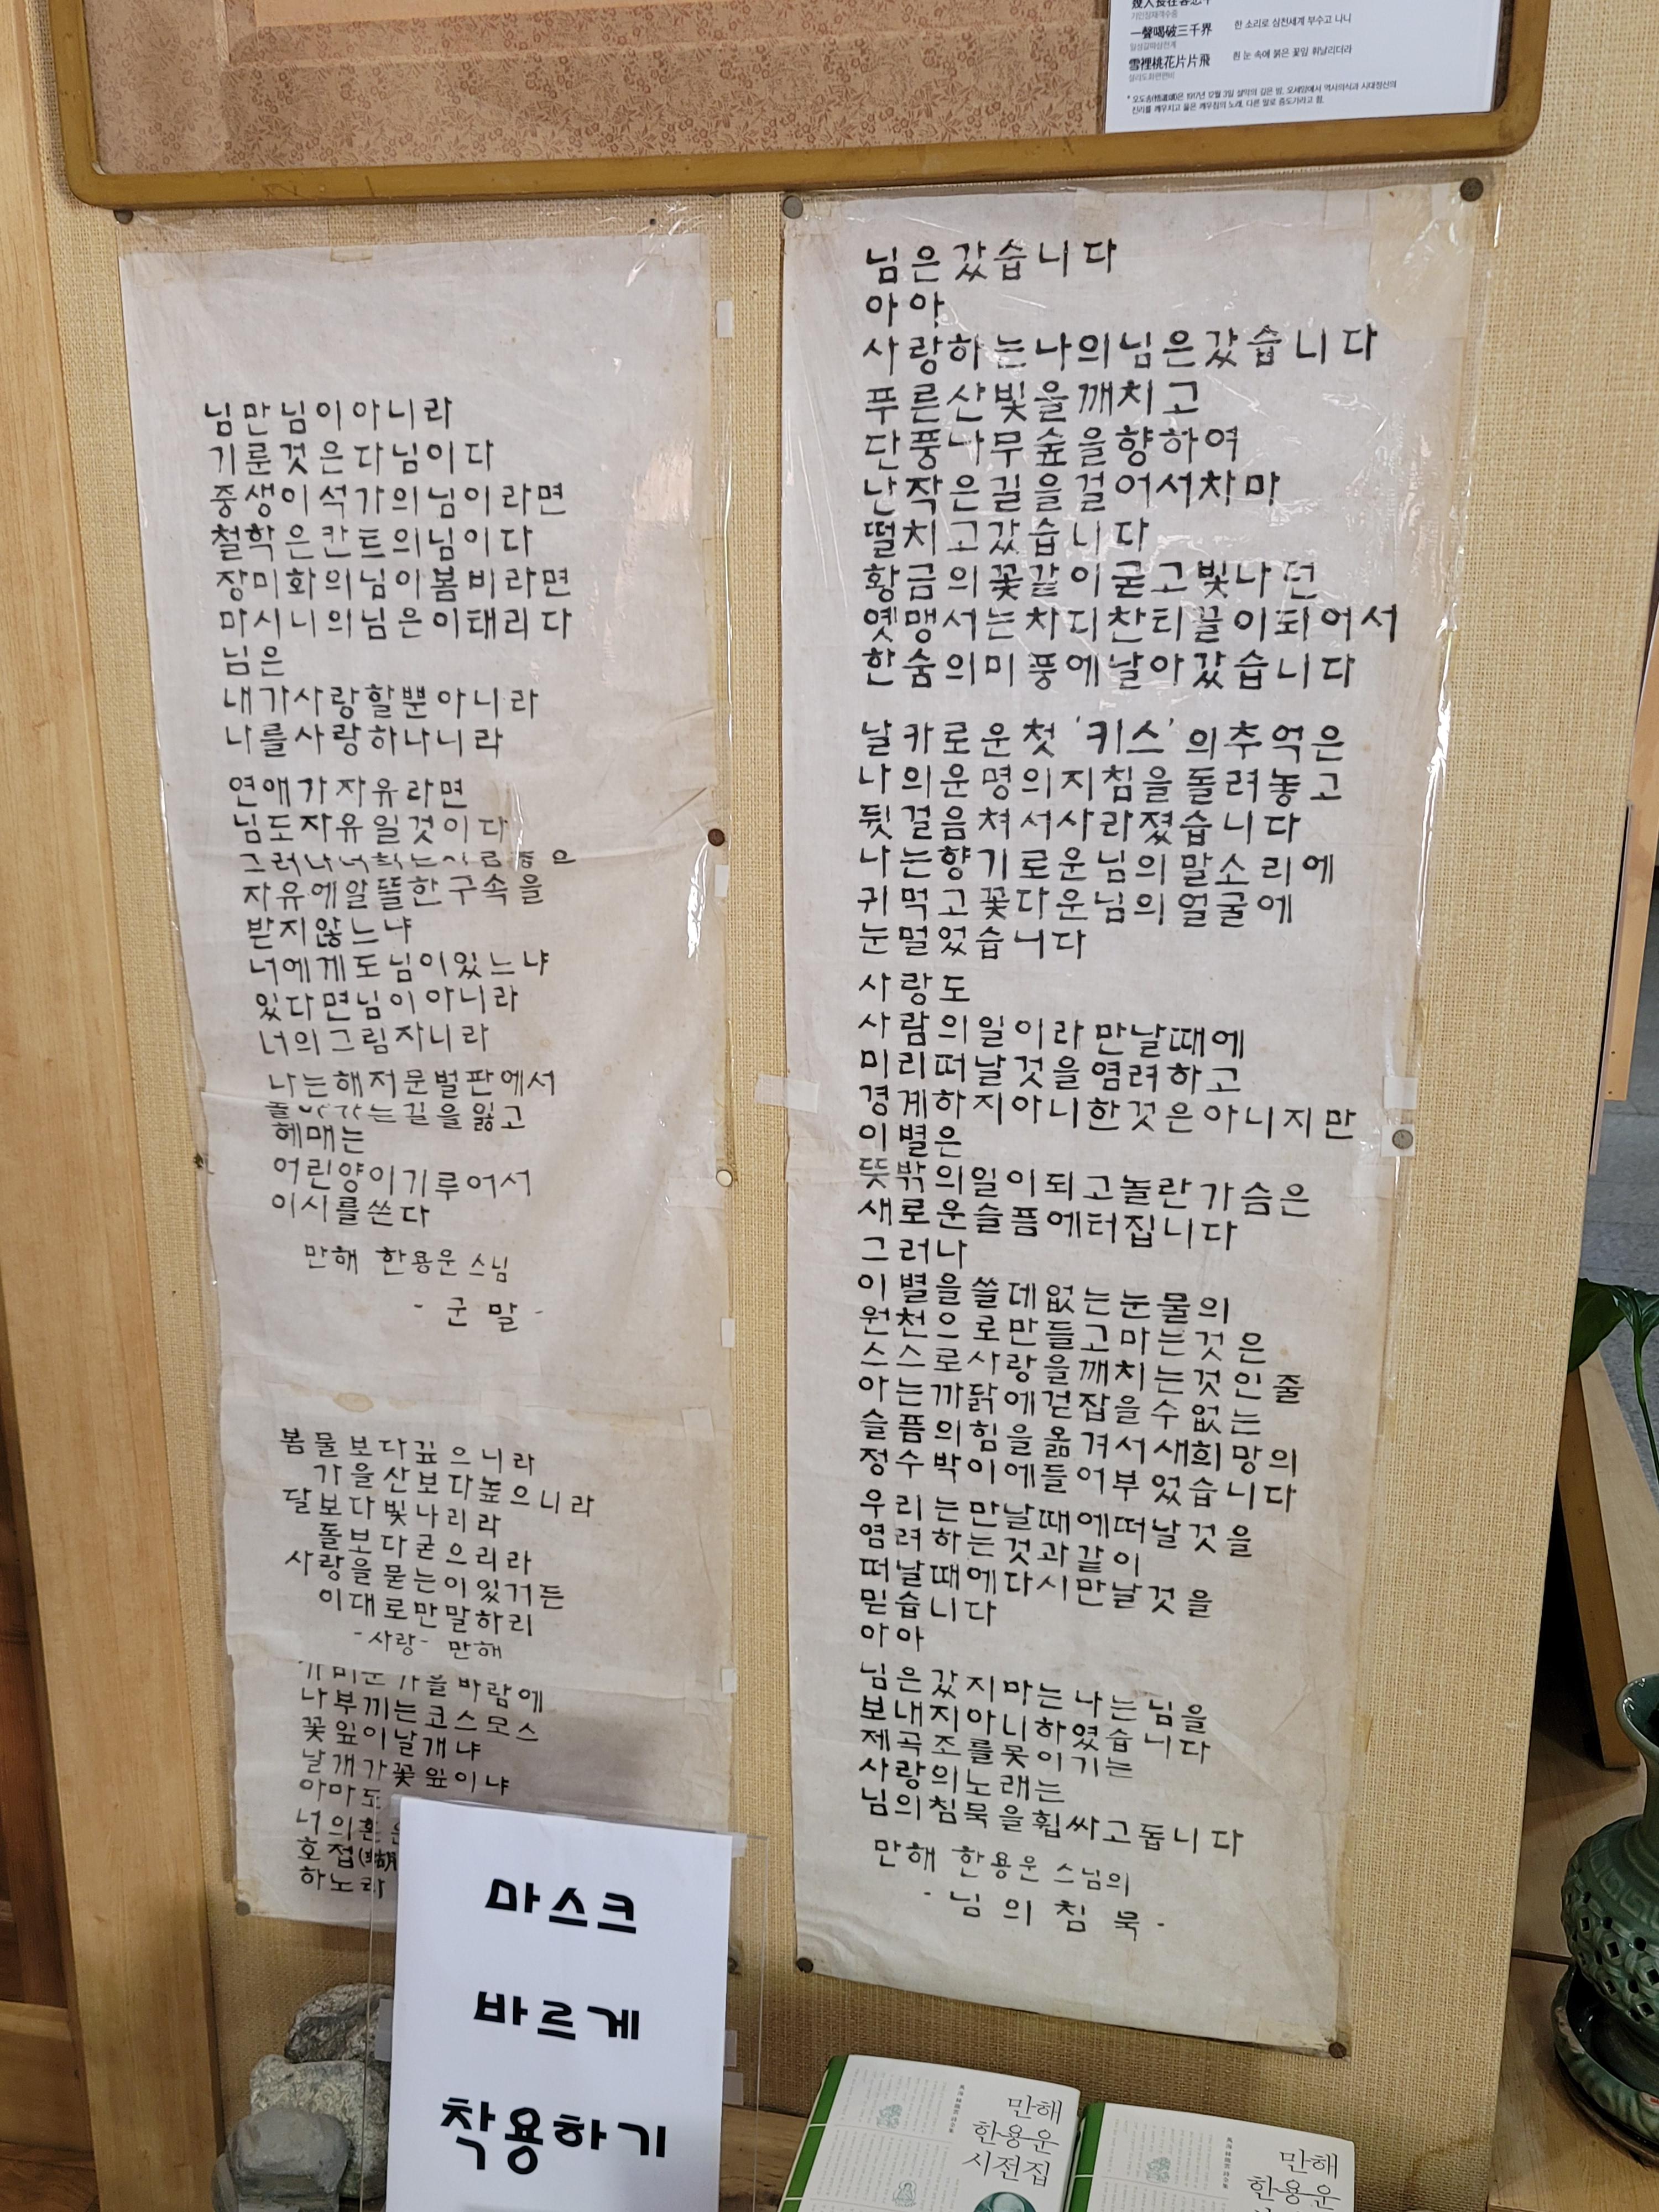 一聲喝破三千界
일성갈파삼천계
한 소리로 삼천세계 부수고 나니
雪裡桃花片片飛
설리도화편편비
흰 눈 속에 붉은 꽃잎 휘날리더라
님만님이아니라
기룬것은다님이다
중생이석가의님이라면
철학은칸트의님이다
장미화의님이봄비라면
마시니의님은이태리다
님은
내가사랑할뿐아니라
나를사랑하나니라
연애가자유라면
님도자유일것이다
그러나너희는
자유에알뜰한구속을
받지않느냐
너에게도님이있느냐
있다면님이아니라
너의그림자니라
나는해저문벌판에서
는길을잃고
헤매는
어린양이기루어서
이시를쓴다
만해 한용운 스님
- 군 말 -
봄물보다깊으니라
가을산보다높으니라
달보다빛나리라
돌보다굳으리라
사랑을묻는이있거든
이대로만말하리
-사랑- 만해
가을바람에
나부끼는코스모스
꽃잎이날개냐
날개가꽃잎이냐
아마도
너의혼은
호접(
하노라
님은갔습니다
아아
사랑하는나의님은갔습니다
푸른산빛을깨치고
단풍나무숲을향하여
난작은길을걸어서차마
떨치고갔습니다
황금의꽃같이굳고빛나던
옛맹서는차디찬티끌이되어서
한숨의미풍에날아갔습니다
날카로운첫 '키스' 의추억은
나의운명의지침을돌려놓고
뒷걸음쳐서사라졌습니다
나는향기로운님의말소리에
귀먹고꽃다운님의얼굴에
눈멀었습니다
사랑도
사람의일이라만날때에
미리떠날것을염려하고
경계하지아니한것은아니지만
이별은
뜻밖의일이되고놀란가슴은
새로운슬픔에터집니다
그러나
이별을쓸데없는눈물의
원천으로만들고마는것은
스스로사랑을깨치는것인줄
아는까닭에걷잡을수없는
슬픔의힘을옮겨서새희망의
정수박이에들어부었습니다
우리는만날때에떠날것을
염려하는것과같이
떠날때에다시만날것을
믿습니다
아아
님은갔지마는나는님을
보내지아니하였습니다
제곡조를못이기는
사랑의노래는
님의침묵을휩싸고돕니다
만해 한용운 스님의
- 님 의 침 묵 -
마스크
바르게
착용하기
만해
한용운
시전집
만해
한용운